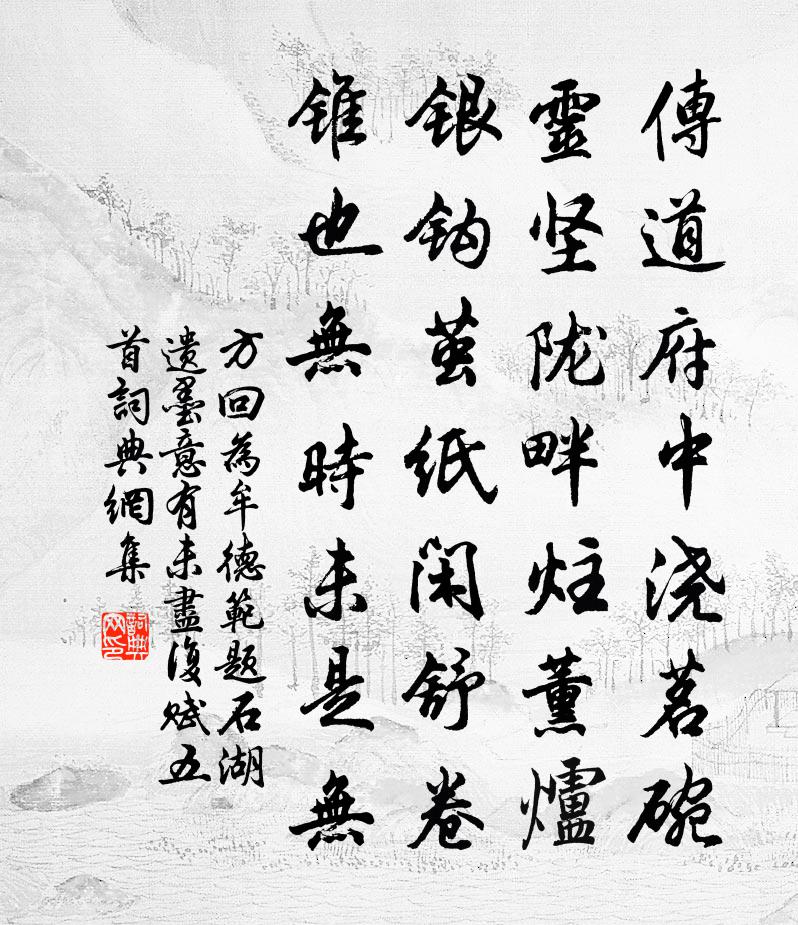 傳道府中浇茗碗
靈坚陇畔炷薰爐
银钩茧纸闲舒卷
锥也無時未是無
方回為牟德範题石湖
遗墨意有未盡復赋五
首詞典網集
詞典網印